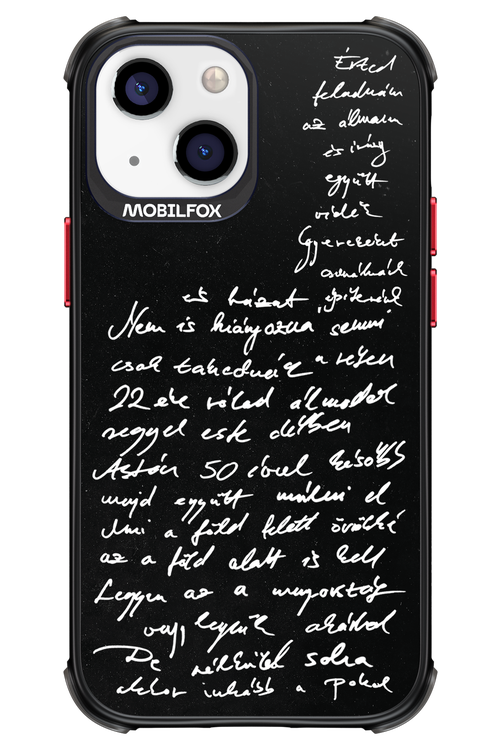 MOBILFOX
Érted
feladnám
az álmom
és így
együtt
vidék
Gyerekeket
csinálnék
és házat építenék
Nem is hiányozna semmi
csak takednék a
22 éve rólad álmodok
reggel este délben
Aztán 50 évvel később
majd együtt múlni el
Ami a föld felett örökké
az a föld alatt is kell
Legyen az a mennyország
vagy legyünk akárhol
De nélküled soha
akkor inkább a Pokol